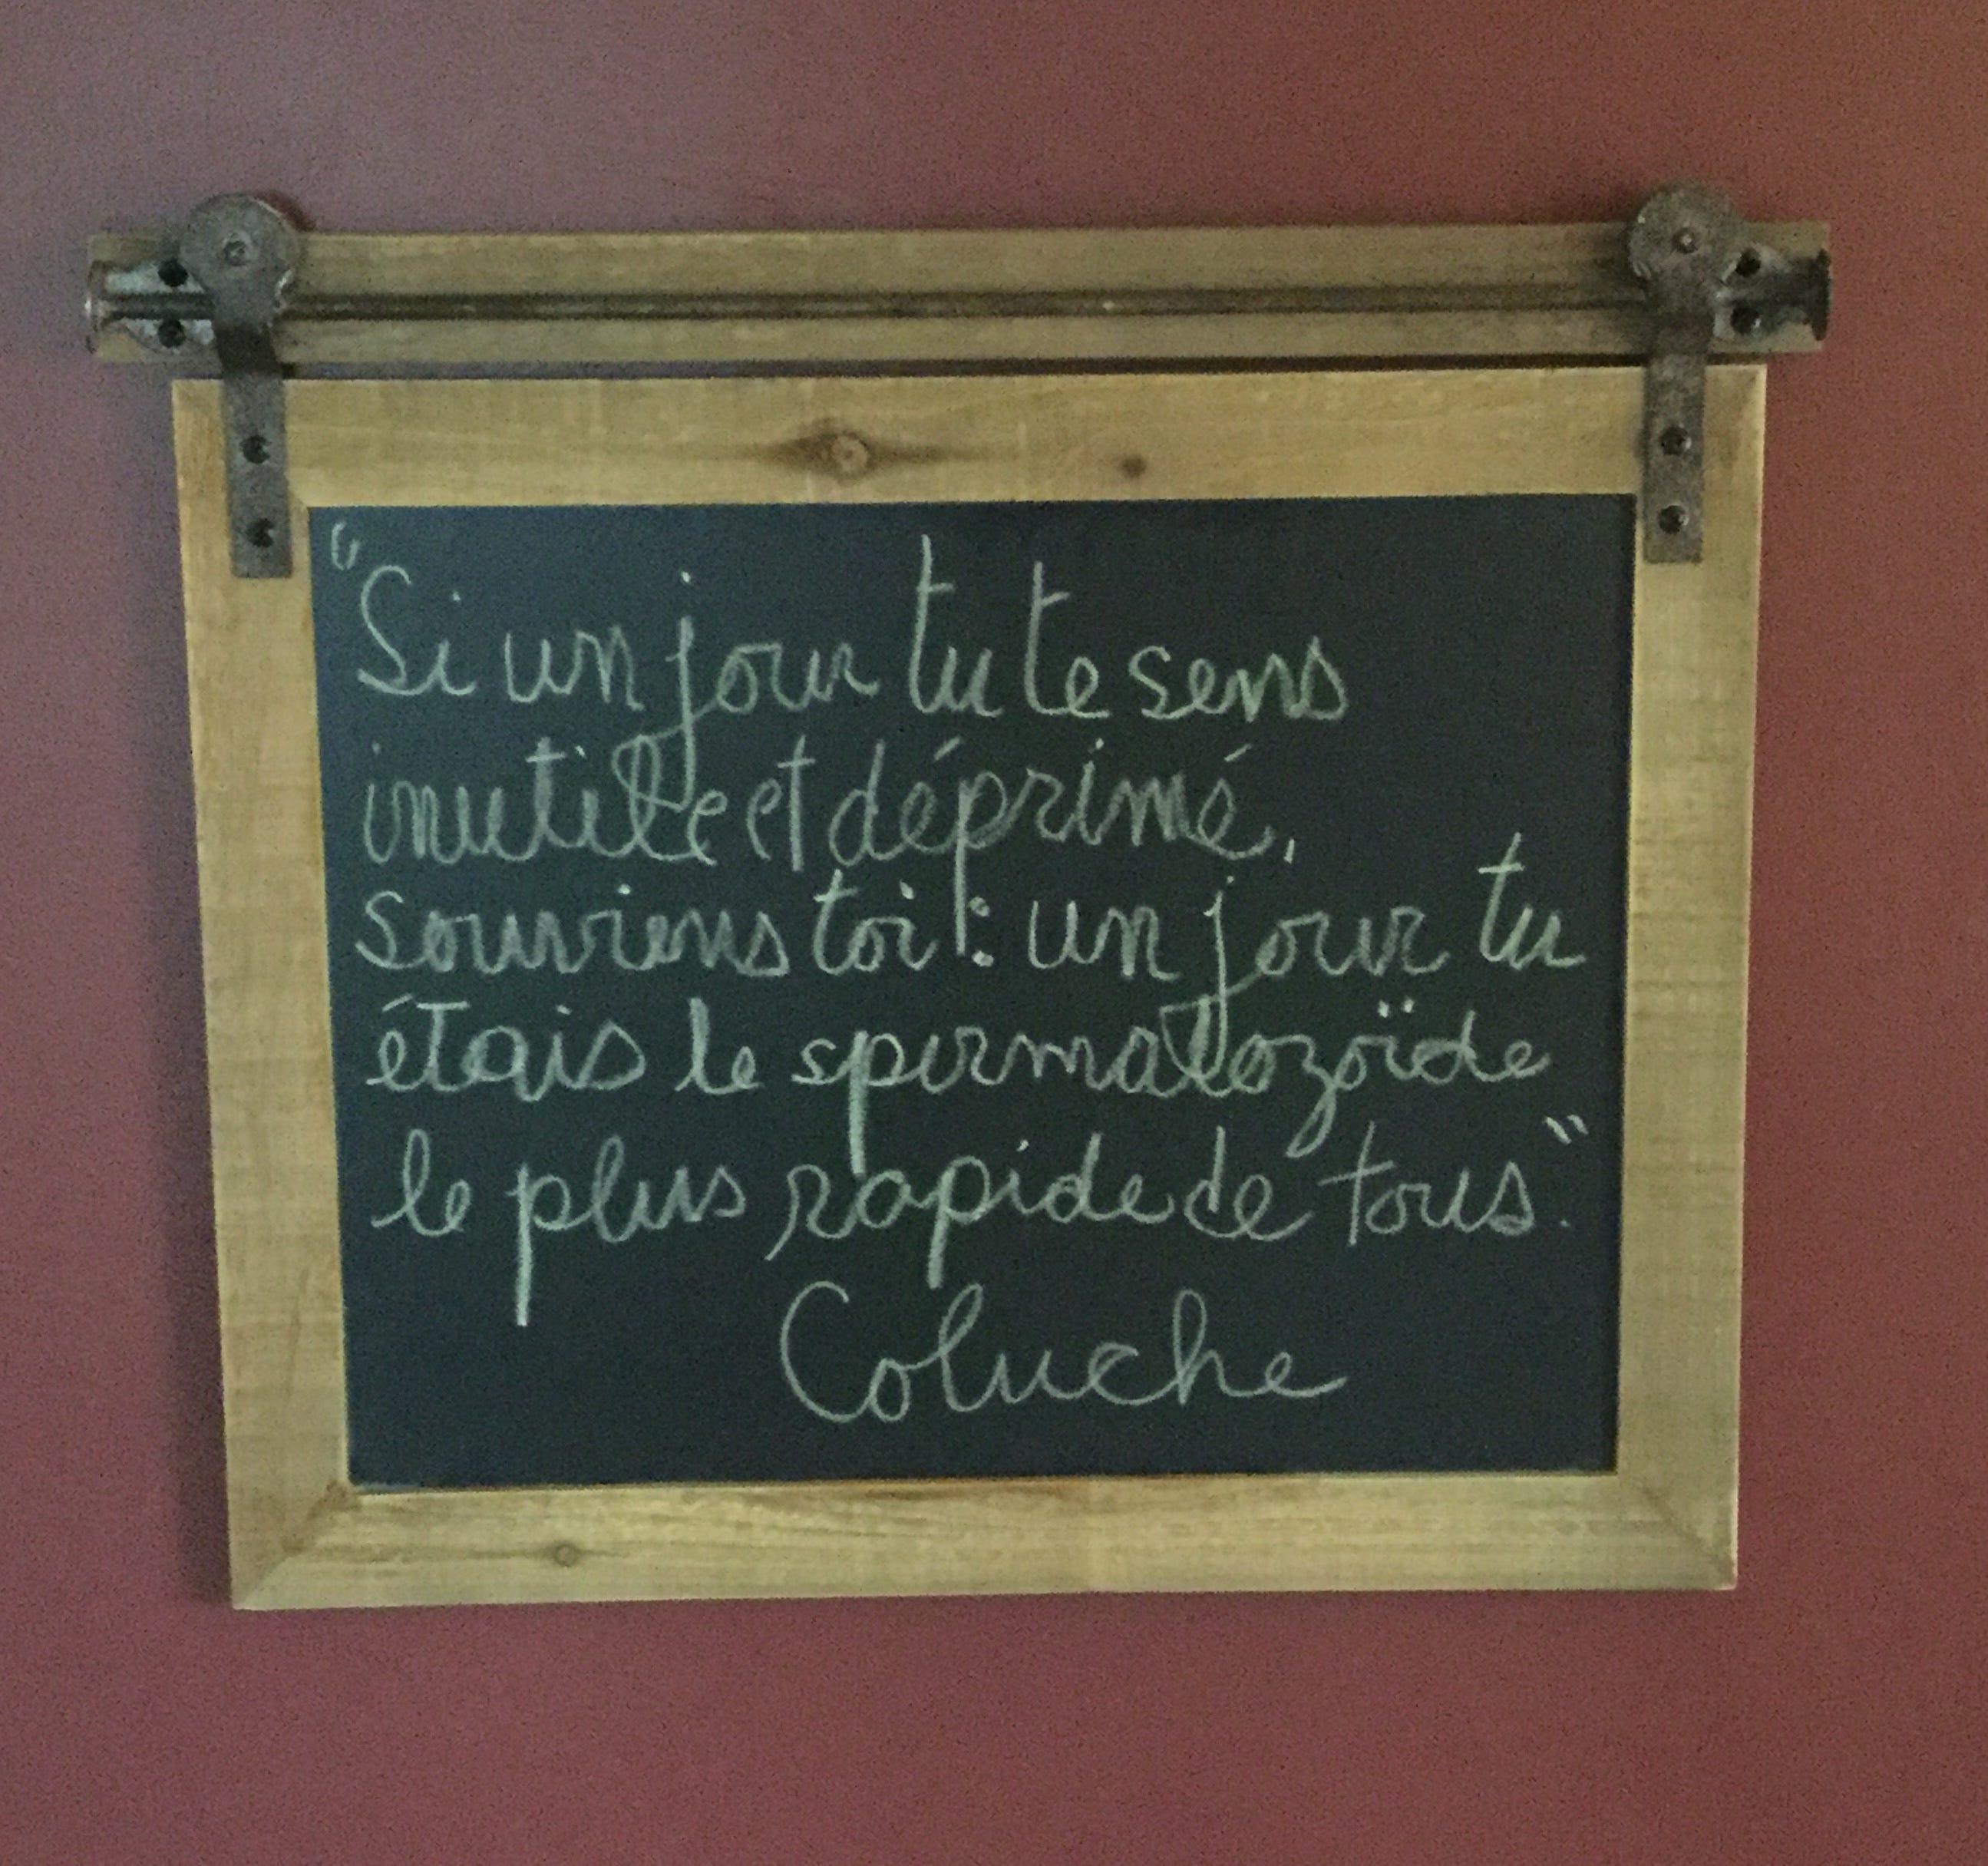 "Si un jour tu te sens
inutile et déprimé,
souviens toi : un jour tu
étais le spermatozoïde
le plus rapide de tous."
Coluche